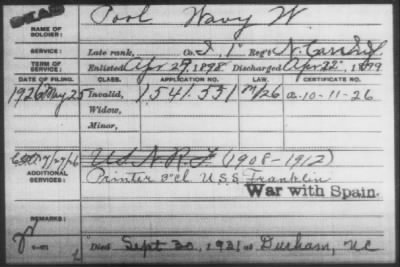 DEAD
NAME OF SOLDIER: Pool Wavy W
SERVICE: Late rank, Co. I, 1" Reg't N. Car. Inf
TERM OF SERVICE: Enlisted Apr 27, 1898 Discharged Apr 22", 1899
DATE OF FILING. CLASS. APPLICATION NO. LAW. CERTIFICATE NO.
1926 May 25 Invalid, 1541.551 a-10-11-26
Widow,
Minor,
ADDITIONAL SERVICES: U.S.N.R.F (1908-1912)
Printer 3"cl U.S.S. Franklin
War with Spain.
REMARKS:
Died Sept 30, 1931 at Durham, NC